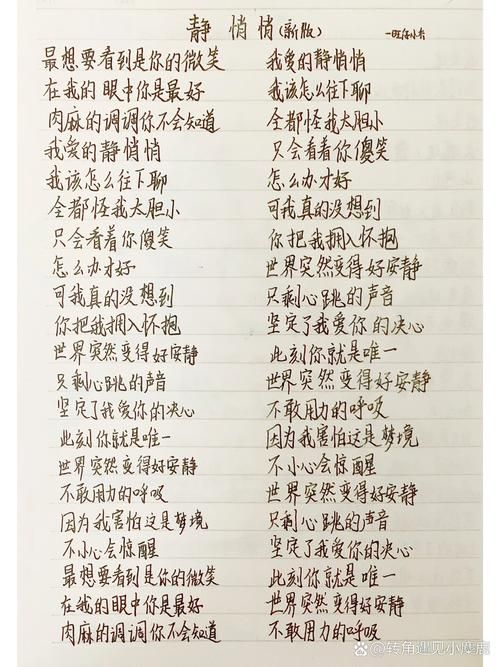 静悄悄(新版)
最想要看到是你的微笑
在我的眼中你是最好
肉麻的调调你不会知道
我爱的静悄悄
我该怎么往下聊
全都怪我太胆小
只会看着你傻笑
怎么办才好
可我真的没想到
你把我拥入怀抱
世界突然变得好安静
只剩心跳的声音
坚定了我爱你的决心
此刻你就是唯一
世界突然变得好安静
不敢用力的呼吸
因为我害怕这是梦境
不小心会惊醒
最想要看到是你的微笑
在我的眼中你是最好
肉麻的调调你不会知道
我爱的静悄悄
我该怎么往下聊
全都怪我太胆小
只会看着你傻笑
怎么办才好
可我真的没想到
你把我拥入怀抱
世界突然变得好安静
只剩心跳的声音
坚定了我爱你的决心
此刻你就是唯一
世界突然变得好安静
不敢用力的呼吸
因为我害怕这是梦境
不小心会惊醒
世界突然变得好安静
只剩心跳的声音
坚定了我爱你的决心
此刻你就是唯一
世界突然变得好安静
不敢用力的呼吸
@转角遇见小糜鹿